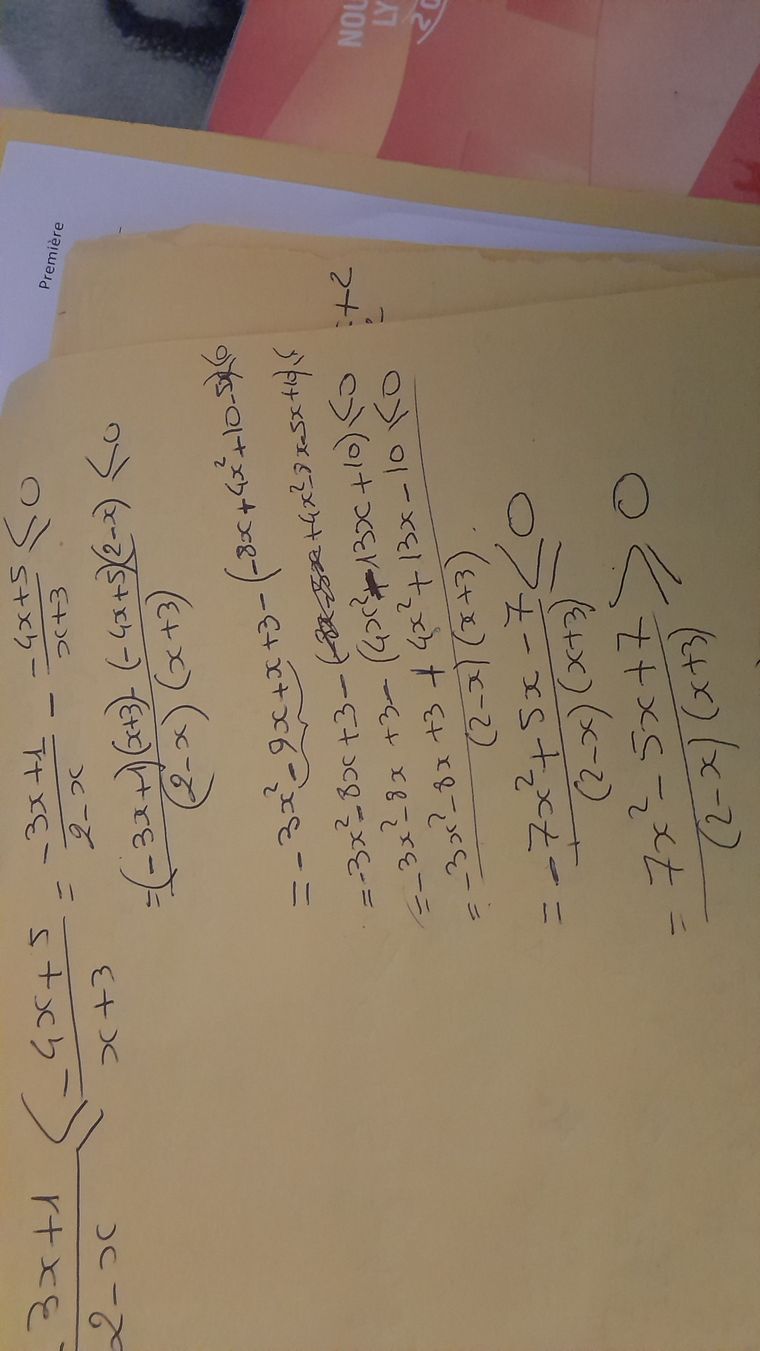 -3x+1/2-x ≤ -4x+5/x+3 = -3x+1/2-x - -4x+5/x+3 ≤ 0
= (-3x+1)(x+3)-(-4x+5)(2-x)/(2-x)(x+3) ≤ 0
= -3x²-9x+x+3-(-8x+4x²+10-5x) ≤ 0
= -3x²-8x+3-(+4x²-8x-5x+10) ≤
= -3x²-8x+3-(4x²-13x+10) ≤ 0
= -3x²-8x+3+4x²+13x-10 ≤ 0/(2-x)(x+3)
= -7x²+5x-7/(2-x)(x+3) ≤ 0
= 7x²-5x+7/(2-x)(x+3) ≥ 0
Première
NOU
LY
20
+2